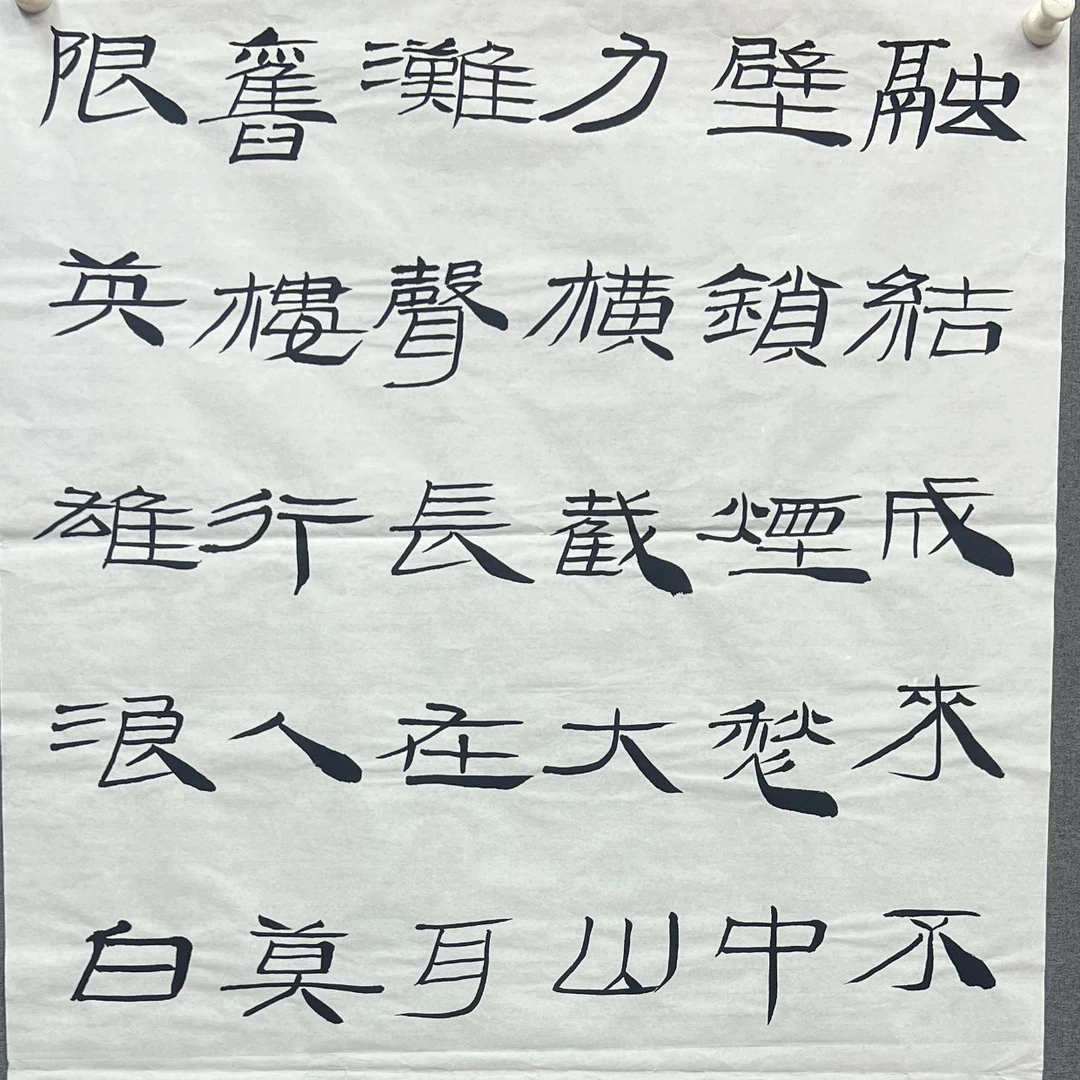 融結成來不
壁鎖煙愁中
力橫截大山
灘聲長在耳
舊樓行人莫
限英雄浪白